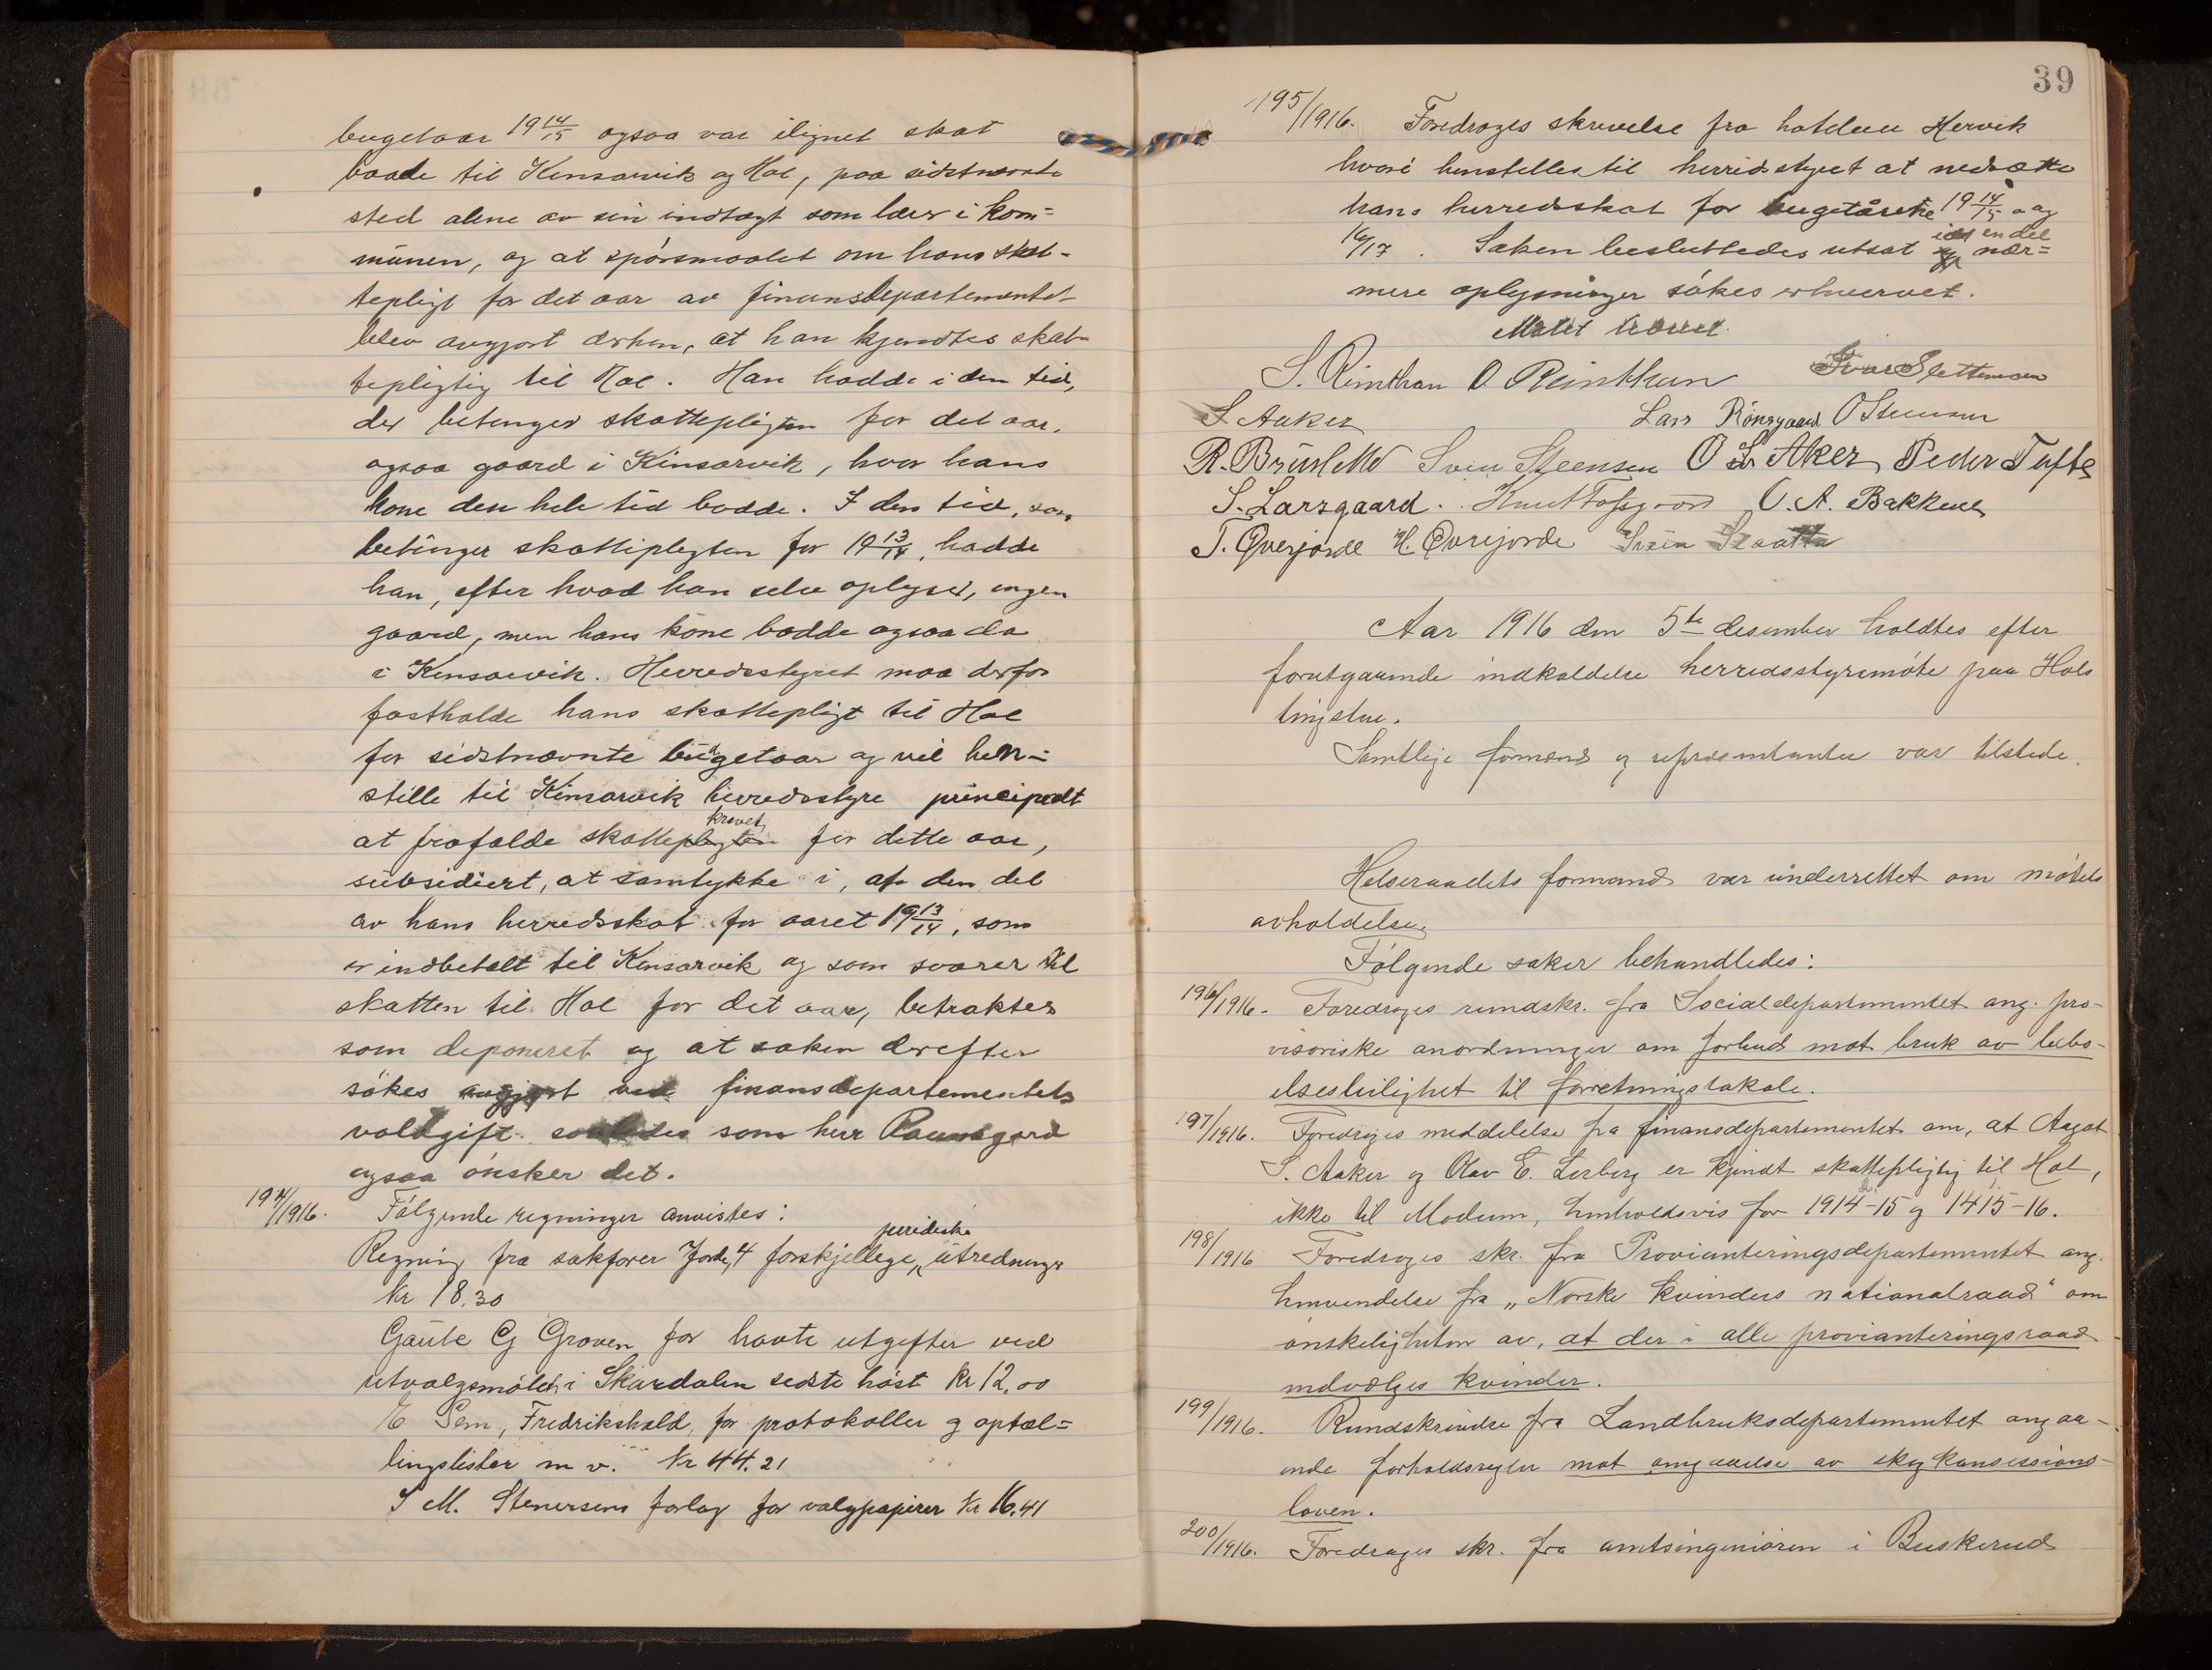 bugetaar 19 14/15 ogsaa var ilignet skat
baade til Kinsarvik og Hol, paa sidstnævnte
sted alene av sin indtægt som lærer i kom=
munen, og at spørsmaalet om hans skat-
tepligt for det aar av finansdepartementet
blev avgjort derhen, at han kjendtes skat-
tepligtig til Hol. Han hadde i den tid,
der betinger skattepligten for det aar,
ogsaa gaard i Kinsarvik, hvor hans
kone den hele tid bodde. I den tid, som
betinger skattepligten for 19 13/14, hadde
han, efter hvad han selv oplyser, ingen
gaard, men hans kone bodde ogsaa da
i Kinsarvik. Herredsstyret maa derfor
fastholde hans skattepligt til Hol
for sidstnævnte budgetaar og vil hen-
stille til Kinsarvik herredsstyre principalt
at frafalde skattekravet for dette aar,
subsidiert, at samtykke i, at den del
av hans herredsskat for aaret 19 13/14, som
er indbetalt til Kinsarvik og som svarer til
skatten til Hol for det aar, betraktes
som deponeret og at saken derefter
søkes avgjort ved finansdepartementets
voldgift saaledes som herr Raunsgard
ogsaa ønsker det.
194/1916. Følgende regninger anvistes:
Regning fra sakfører Jorde, 4 forskjellige juridiske utredninger
Kr 18.30
Gaute G Groven for havte utgifter ved
utvalgsmøtet i Skurdalen sidste høst Kr 12,00
E Sem, Fredrikshald, for protokoller og optæl=
lingslister m v. Kr 44.21
S M. Stenersens forlag for valgpapirer Kr 16.41
39
195/1916. Foredroges skrivelse fra Hervik
hvori henstilles til herredsstyret at nedsætte
hans herredsskat for bugetårene 19 14/15 og
16/17. Saken besluttedes utsat idet en del nær=
mere oplysninger søkes erhvervet.
Møtet hævet.
S. Rimthun O Reinthun Ivar Slettemoen
S Aaker Lars Rønsgaard O Steensen
R. Brusletto Svein Steensen O L Aker, Peder Tufte
S. Larsgaard. Knut Fossgaard O. A. Bakken
T. Øverjorde H. Øvrejorde Svein Slaatta
Aar 1916 den 5te desember holdtes efter
forutgaaende indkaldelse herredsstyremøte paa Hols
tingstue.
Samtlige formænd og repræsentanter var tilstede.
Helseraadets formand var underrettet om møtets
avholdelse.
Følgende saker behandledes:
196/1916. Foredroges rundskr. fra Socialdepartementet ang. pro-
visoriske anordninger om forbud mot bruk av bebo-
elsesleilighet til forretningslokale.
197/1916. Foredroges meddelelse fra finansdepartementet om, at Aagot
S. Aaker og Olav E. Lerberg er kjendt skattepligtig til Hol,
ikke til Modum, henholdsvis for 1914-15 og 1415-16.
198/1916 Foredroges skr. fra Provianteringsdepartementet ang.
henvendelse fra „Norske Kvinders nationalraad“ om
ønskeligheten av, at der i alle provianteringsraad
indvælges kvinder.
199/1916. Rundskrivelse fra Landbruksdepartementet angaa-
ende forholdsregler mot omgaaelse av skogkonsessions-
loven.
200/1916. Foredroges skr. fra amtsingeniøren i Buskerud